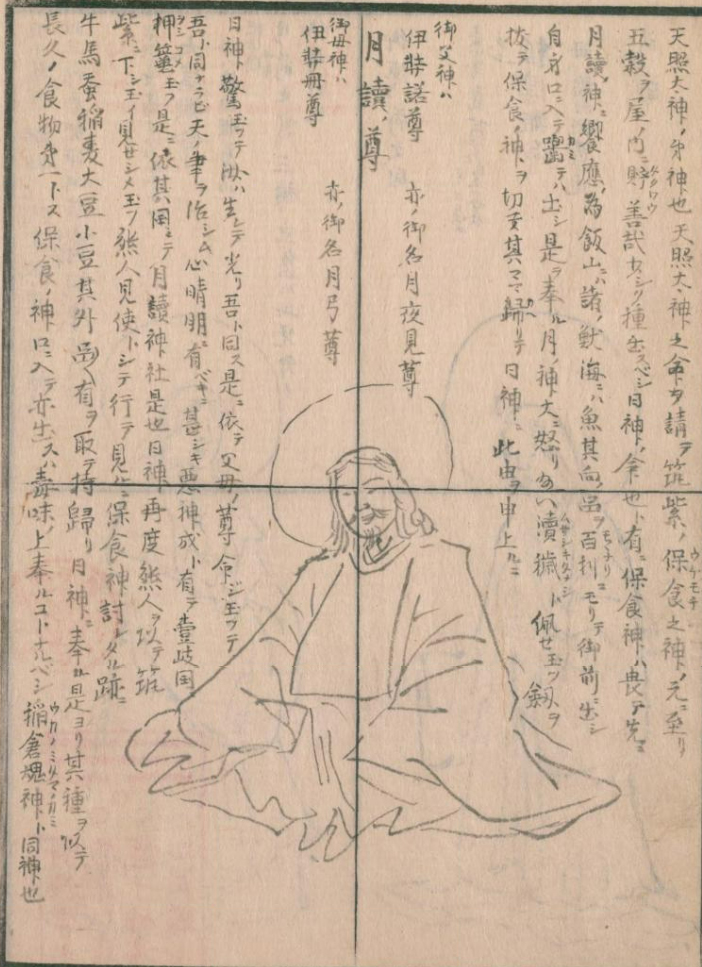 天照大神ノ弟神也天照大神之命ヲ請テ筑紫ノ保食之神ノ元ニ至リ
五穀ヲ屋ノ内ニ貯善哉 種出スベシ日神ノ命也ト有ニ保食神ハ畏テ先ニ
月讀ノ神ニ饗應ノ為飯山ニハ諸ノ獣海ニハ魚其向 ヲ百机ニモリテ御前ニ出シ
自身口ニ入テ テハ出シ是ヲ奉ル月ノ神大ニ怒リ 瀆穢ト佩セ玉ツ劔ヲ
抜テ保食ノ神ヲ切玉其ママ歸リテ日神ニ此由ヲ申上ルニ
御父神ハ
伊弉諾尊 亦ノ御名月夜見尊
月讀ノ尊
御母神ハ
伊弉册尊 亦ノ御名月弓尊
日神驚玉ツテ汝ハ生レテ光リ吾ト同ス是ニ依テ父母ノ尊命ジ玉ツテ
吾ト同 天ノ事ヲ治シム心晴明ニ有ベキニ甚シキ悪神成ト有テ壹岐国
押篭玉フ是ニ依其国ニテ月讀神社是也日神再度熊人ヲ以テ筑
紫ニ下シ玉イ見セシメ玉ツ熊人見使トシテ行テ見ルニ保食神討レタル跡ニ
牛馬蚕稲麦大豆小豆其外 有ヲ取テ持歸リ日神ニ奉ル是ヨリ其種ヲ以テ
長久ノ食物 一トス保食ノ神口ニ入テ亦出スハ毒味ノ上奉ルコト ベシ稲倉魂神ト同神也